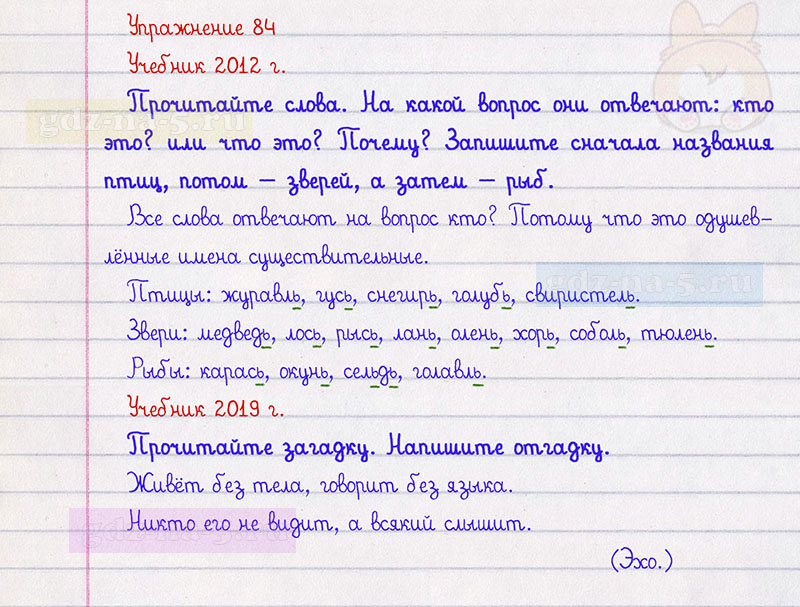 Упражнение 84
Учебник 2012 г.
Прочитайте слова. На какой вопрос они отвечают: кто
это? или что это? Почему? Запишите сначала названия
птиц, потом – зверей, а затем – рыб.
Все слова отвечают на вопрос кто? Потому что это одушев-
лённые имена существительные.
Птицы: журавль, гусь, снегирь, голубь, свиристель.
Звери: медведь, лось, рысь, лань, олень, хорь, соболь, тюлень.
Рыбы: карась, окунь, сельдь, голавль.
Учебник 2019 г.
Прочитайте загадку. Напишите отгадку.
Живёт без тела, говорит без языка.
Никто его не видит, а всякий слышит.
(Эхо.)
gdz-na-5.ru
gdz-na-5.ru
gdz-na-5.ru